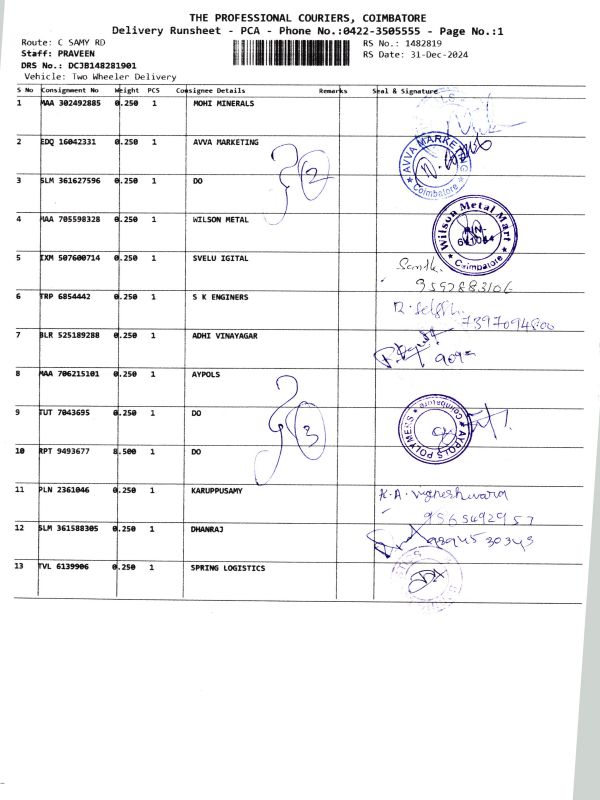 THE PROFESSIONAL COURIERS, COIMBATORE
Delivery Runsheet - PCA - Phone No.:0422-3505555 - Page No.:1
Route: C SAMY RD
RS No.: 1482819
Staff: PRAVEEN
RS Date: 31-Dec-2024
DRS No.: DCJB148281901
Vehicle: Two Wheeler Delivery
S No Consignment No Weight PCS Consignee Details Remarks Seal & Signature
1 MAA 302492885 0.250 1 MOHI MINERALS
2 EDQ 16042331 0.250 1 AVVA MARKETING
AVVA MARKETING
Coimbatore
3 SLM 361627596 0.250 1 DO
2
4 MAA 705598328 0.250 1 WILSON METAL
Wilson Metal Mart
PIN-
Coimbatore
5 IXM 507600714 0.250 1 SVELU IGITAL
9592883106
6 TRP 6854442 0.250 1 S K ENGINERS
7 BLR 525189288 0.250 1 ADHI VINAYAGAR
8 MAA 706215101 0.250 1 AYPOLS
9 TUT 7043695 0.250 1 DO
3
AYPOLS POLYMERS
Coimbatore
10 RPT 9493677 8.500 1 DO
11 PLN 2361046 0.250 1 KARUPPUSAMY
K.A. Vigneshwara
9565492957
12 SLM 361588305 0.250 1 DHANRAJ
9894530345
13 TVL 6139906 0.250 1 SPRING LOGISTICS